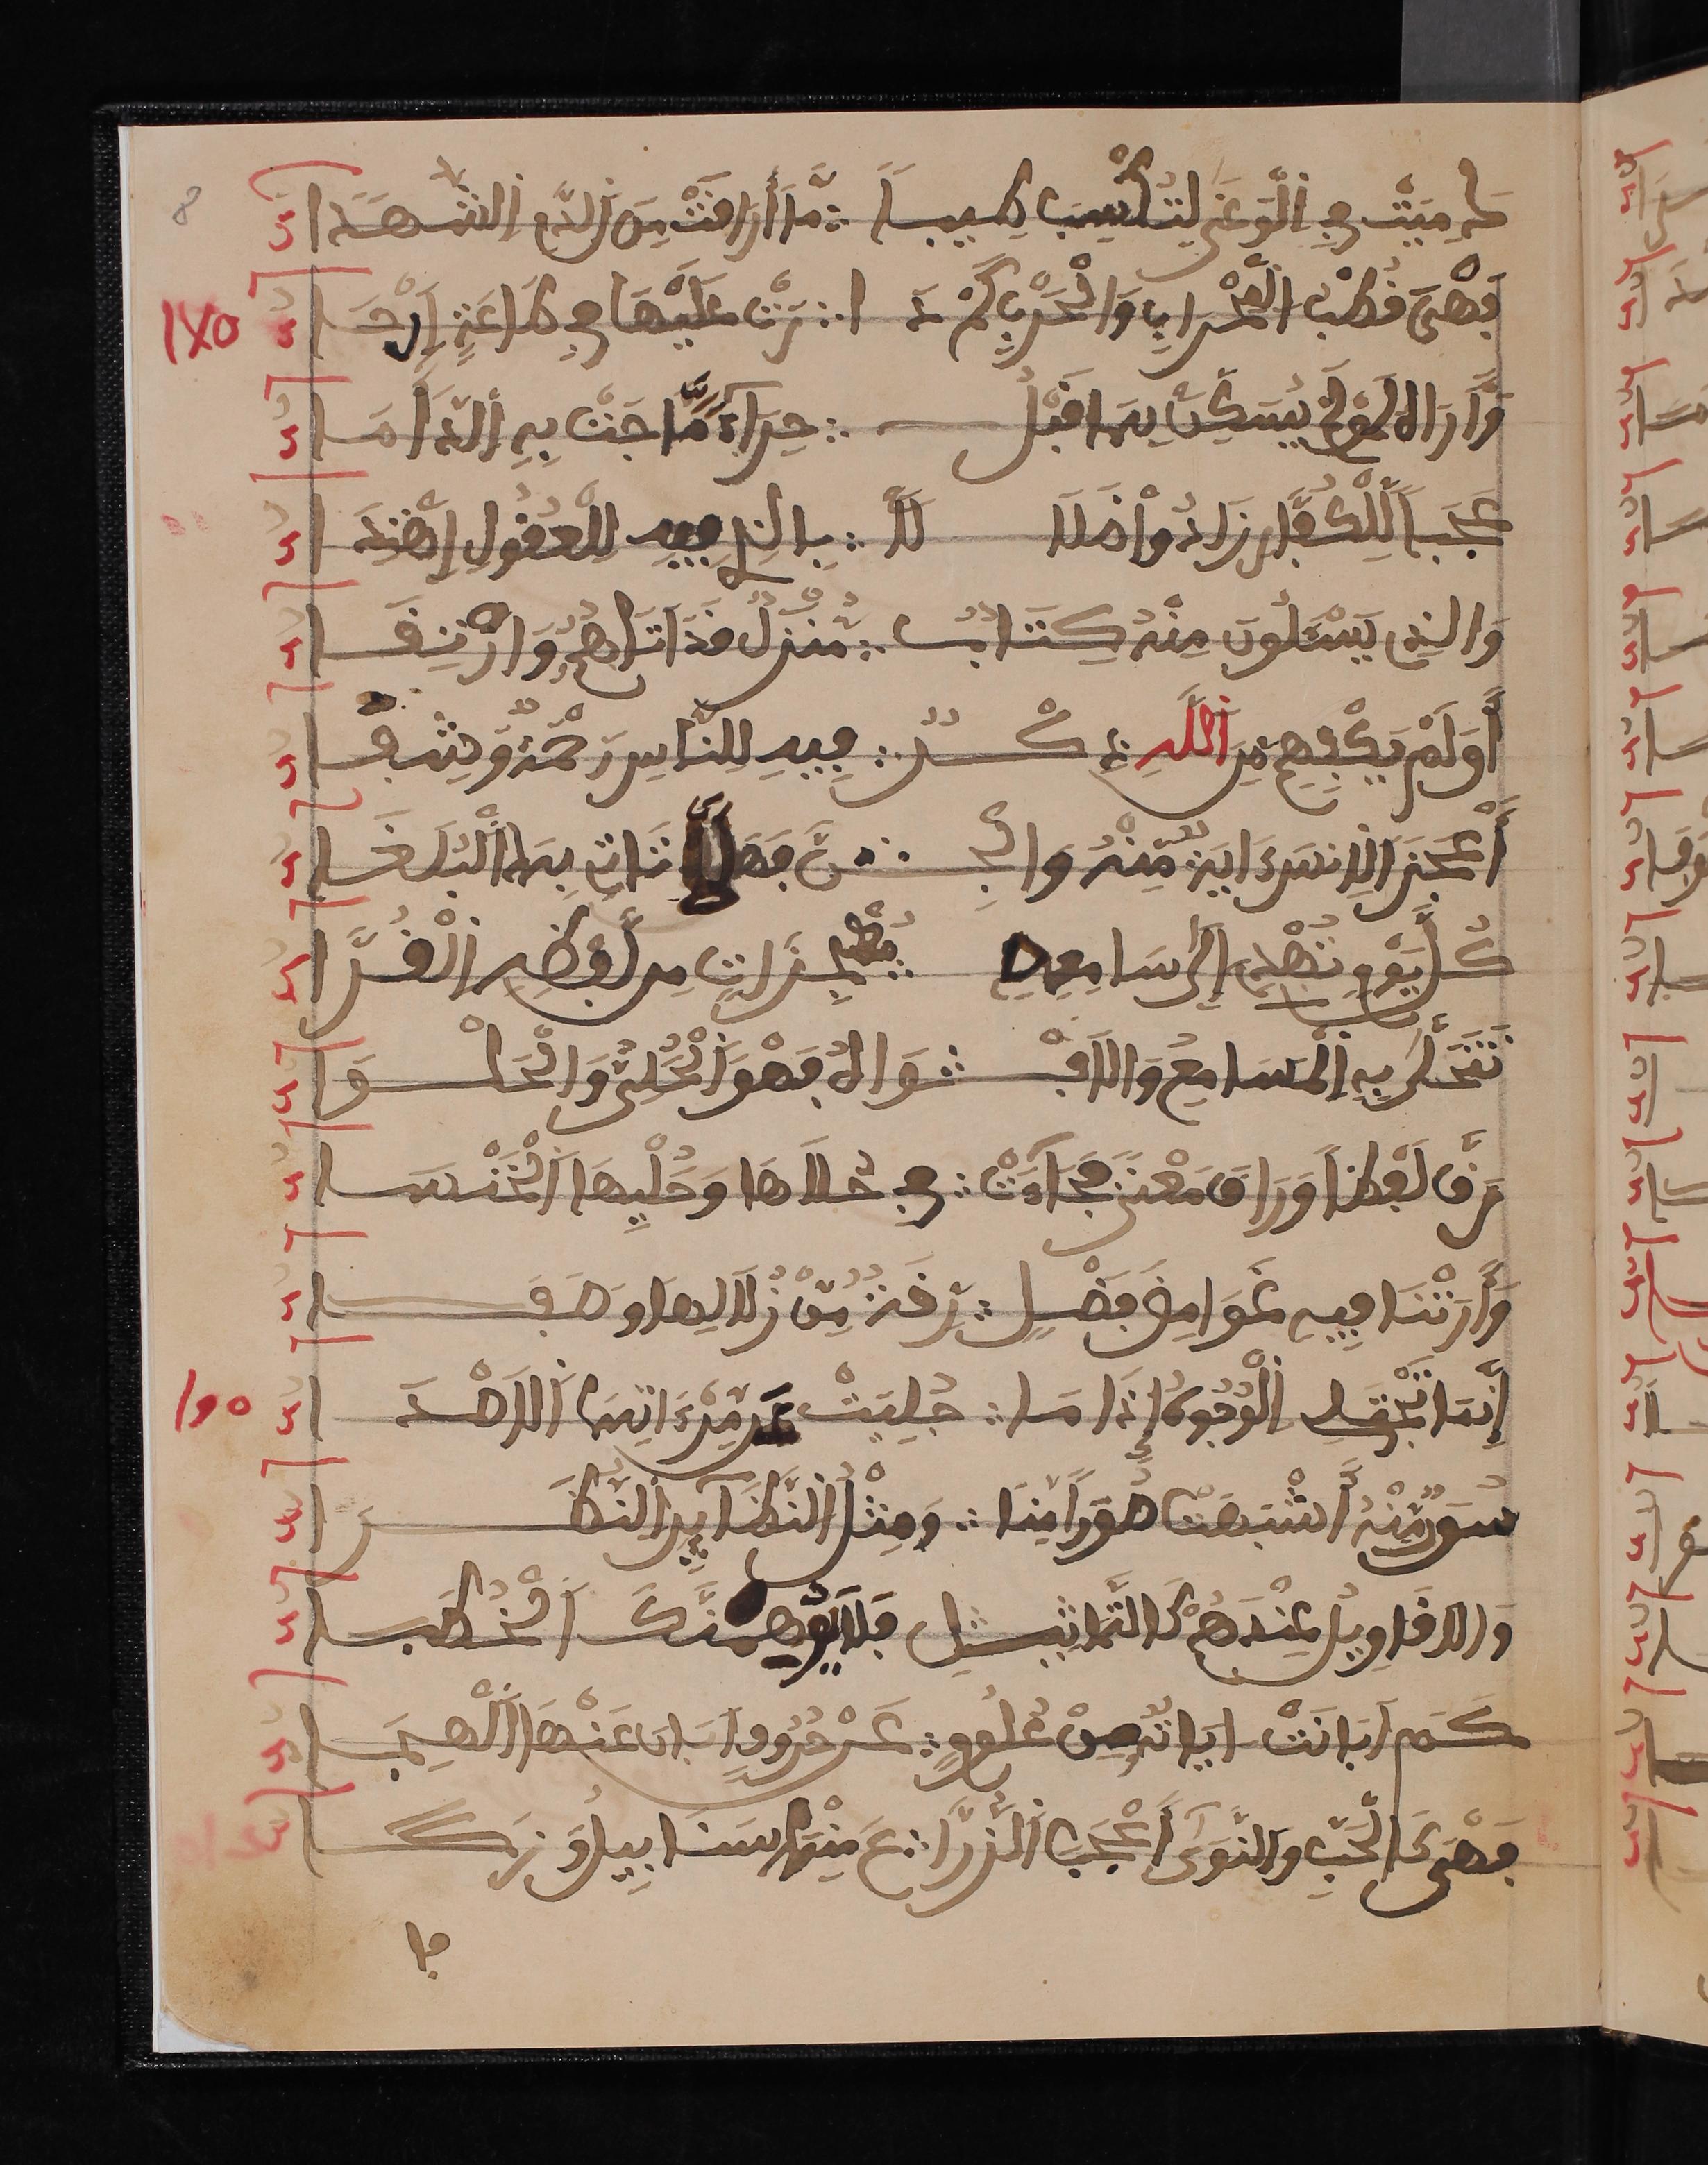 دَمِيَتْ فِي الْوَغَى لِتَكْسِبَ طِيباً ∴ مَّا أَرَاقَتْ مِنَ الدَّمِ الشُّهَدَاءُ
فَهْيَ قُطْبُ الْمِحْرَابِ وَالْحَرْبِ كَمْ دَا ∴ رَتْ عَلَيْهَا فِي طَاعَةٍ اَرْحَاءُ
وَأَرَاهُ لَوْ لَمْ يُسَكِّنْ بِهَا قَبْلُ ∴ حِرَاءً مَّاجَتْ بِهِ الدَّأْمَاءُ
عَجَباً لِلْكُفَّارِ زَادُوا ضَلَالاً ∴ بِالَّذِي فِيهِ لِلْعُقُولِ اِهْتِدَاءُ
وَالَّذِي يَسْئَلُونَ مِنْهُ كِتَابٌ ∴ مُّنْزَلٌ قَدَ اَتَاهُمُ وَارْتِقَاءُ
أَوَلَمْ يَكْفِهِمْ مِّنَ اللَّهِ ذِكْرٌ ∴ فِيهِ لِلنَّاسِ رَحْمَةٌ وَّشِفَاءُ
أَعْجَزَ الِانْسَ ءَايَةٌ مِّنْهُ وَالْجِـ ∴ ـنَّ فَهَلَّا تَاتِي بِهَا الْبُلَغَاءُ
كُلَّ يَوْمٍ تُهْدِي إِلَى سَامِعِيهِ ∴ مُعْجِزَاتٍ مِن لَّفْظِهِ الْقُرَّاءُ
تَتَحَلَّى بِهِ الْمَسَامِعُ وَالَافْـ ∴ ـوَاهُ فَهْوَ الْحُلِيُّ وَالْحَلْوَاءُ
رَقَّ لَفْظاً وَرَاقَ مَعْنىً فَجَاءَتْ ∴ فِي حُلَاهَا وَحَلْيِهَا الْخَنْسَاءُ
وَأَرَتْنَا فِيهِ غَوَامِضَ فَضْلٍ ∴ رِقَّةٌ مِّنْ زُلَالِهَا وَصَفَاءُ
إِنَّمَا تُجْتَلَى الْوُجُوهُ إِذَا مَا ∴ جُلِيَتْ عَن مِّرْءَاتِهَا الَاصْدَاءُ
سُوَرٌ مِّنْهُ أَشْبَهَتْ صُوَراً مِّنَّا ∴ وَمِثْلُ النَّظَائِرِ النُّظَرَاءُ
وَالَاقَاوِيلُ عِنْدَهُمْ كَالتَّمَاثِيلِ فَلَا يُوهِمَنَّكَ الْخُطَبَاءُ
كَمَ اَبَانَتْ ءَايَاتُهُ مِنْ عُلُومٍ ∴ عَنْ حُرُوفٍ اَبَانَ عَنْهَا الْهِجَاءُ
فَهْيَ كَالْحَبِّ وَالنَّوَى أَعْجَبَ الزُّرَّا ∴ عَ مِنْهَا سَنَابِلُ وَزَكَاءُ